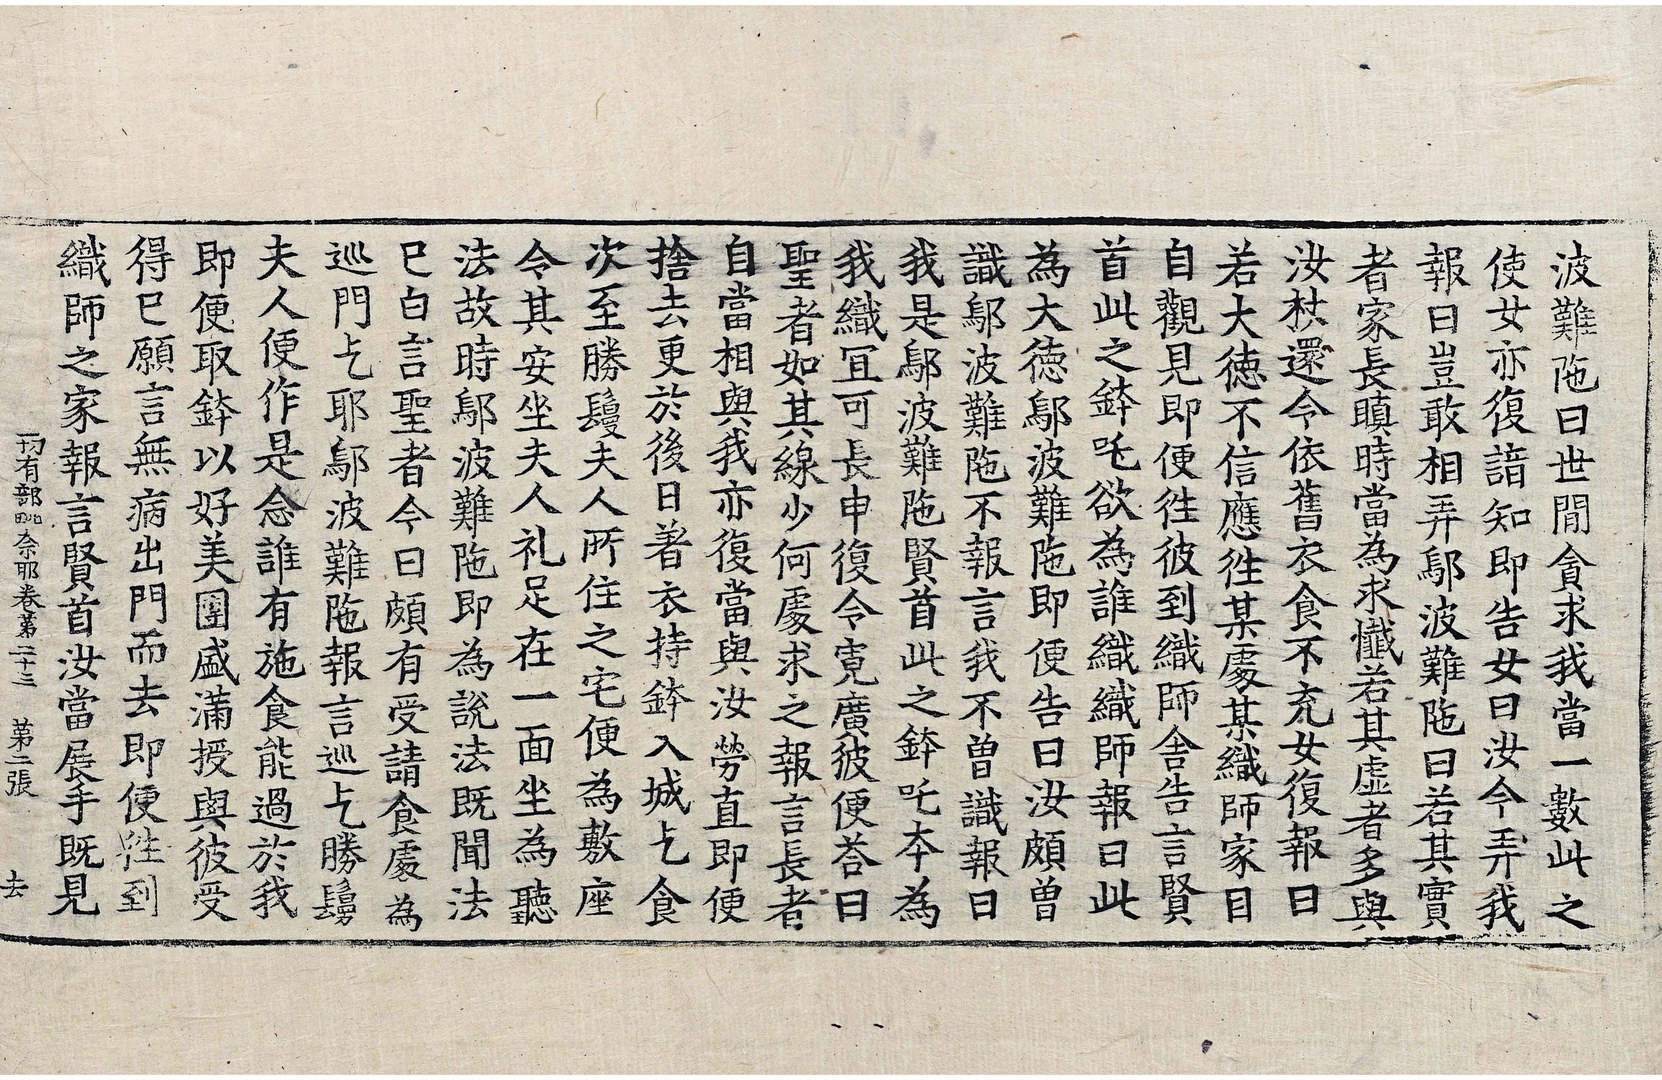 波難陁曰世閒貪求我當一數此之
使女亦復諳知即告女曰汝今弄我
報曰豈敢相弄鄔波難陁曰若其實
者家長瞋時當為求懺若其虛者多與
汝杖還令依舊衣食不充女復報曰
若大徳不信應徃某處某織師家目
自觀見即便徃彼到織師舎告言賢
首此之鉢吒欲為誰織織師報曰此
為大徳鄔波難陁即便告曰汝頗曽
識鄔波難陁不報言我不曽識報曰
我是鄔波難陁賢首此之鉢吒夲為
我織冝可長申復令寬廣彼便荅曰
聖者如其線少何處求之報言長者
自當相與我亦復當與汝勞直即便
捨去更於後日著衣持鉢入城乞食
次至勝鬘夫人所住之宅便為敷座
令其安坐夫人礼足在一面坐為聽
法故時鄔波難陁即為說法既聞法
已白言聖者今日頗有受請食處為
巡門乞耶鄔波難陁報言巡乞勝鬘
夫人便作是念誰有施食能過於我
即便取鉢以好美團盛滿授與彼受
得已願言無病出門而去即便徃到
織師之家報言賢首汝當展手既見
一切有部毗奈耶卷第二十三 第二張 去